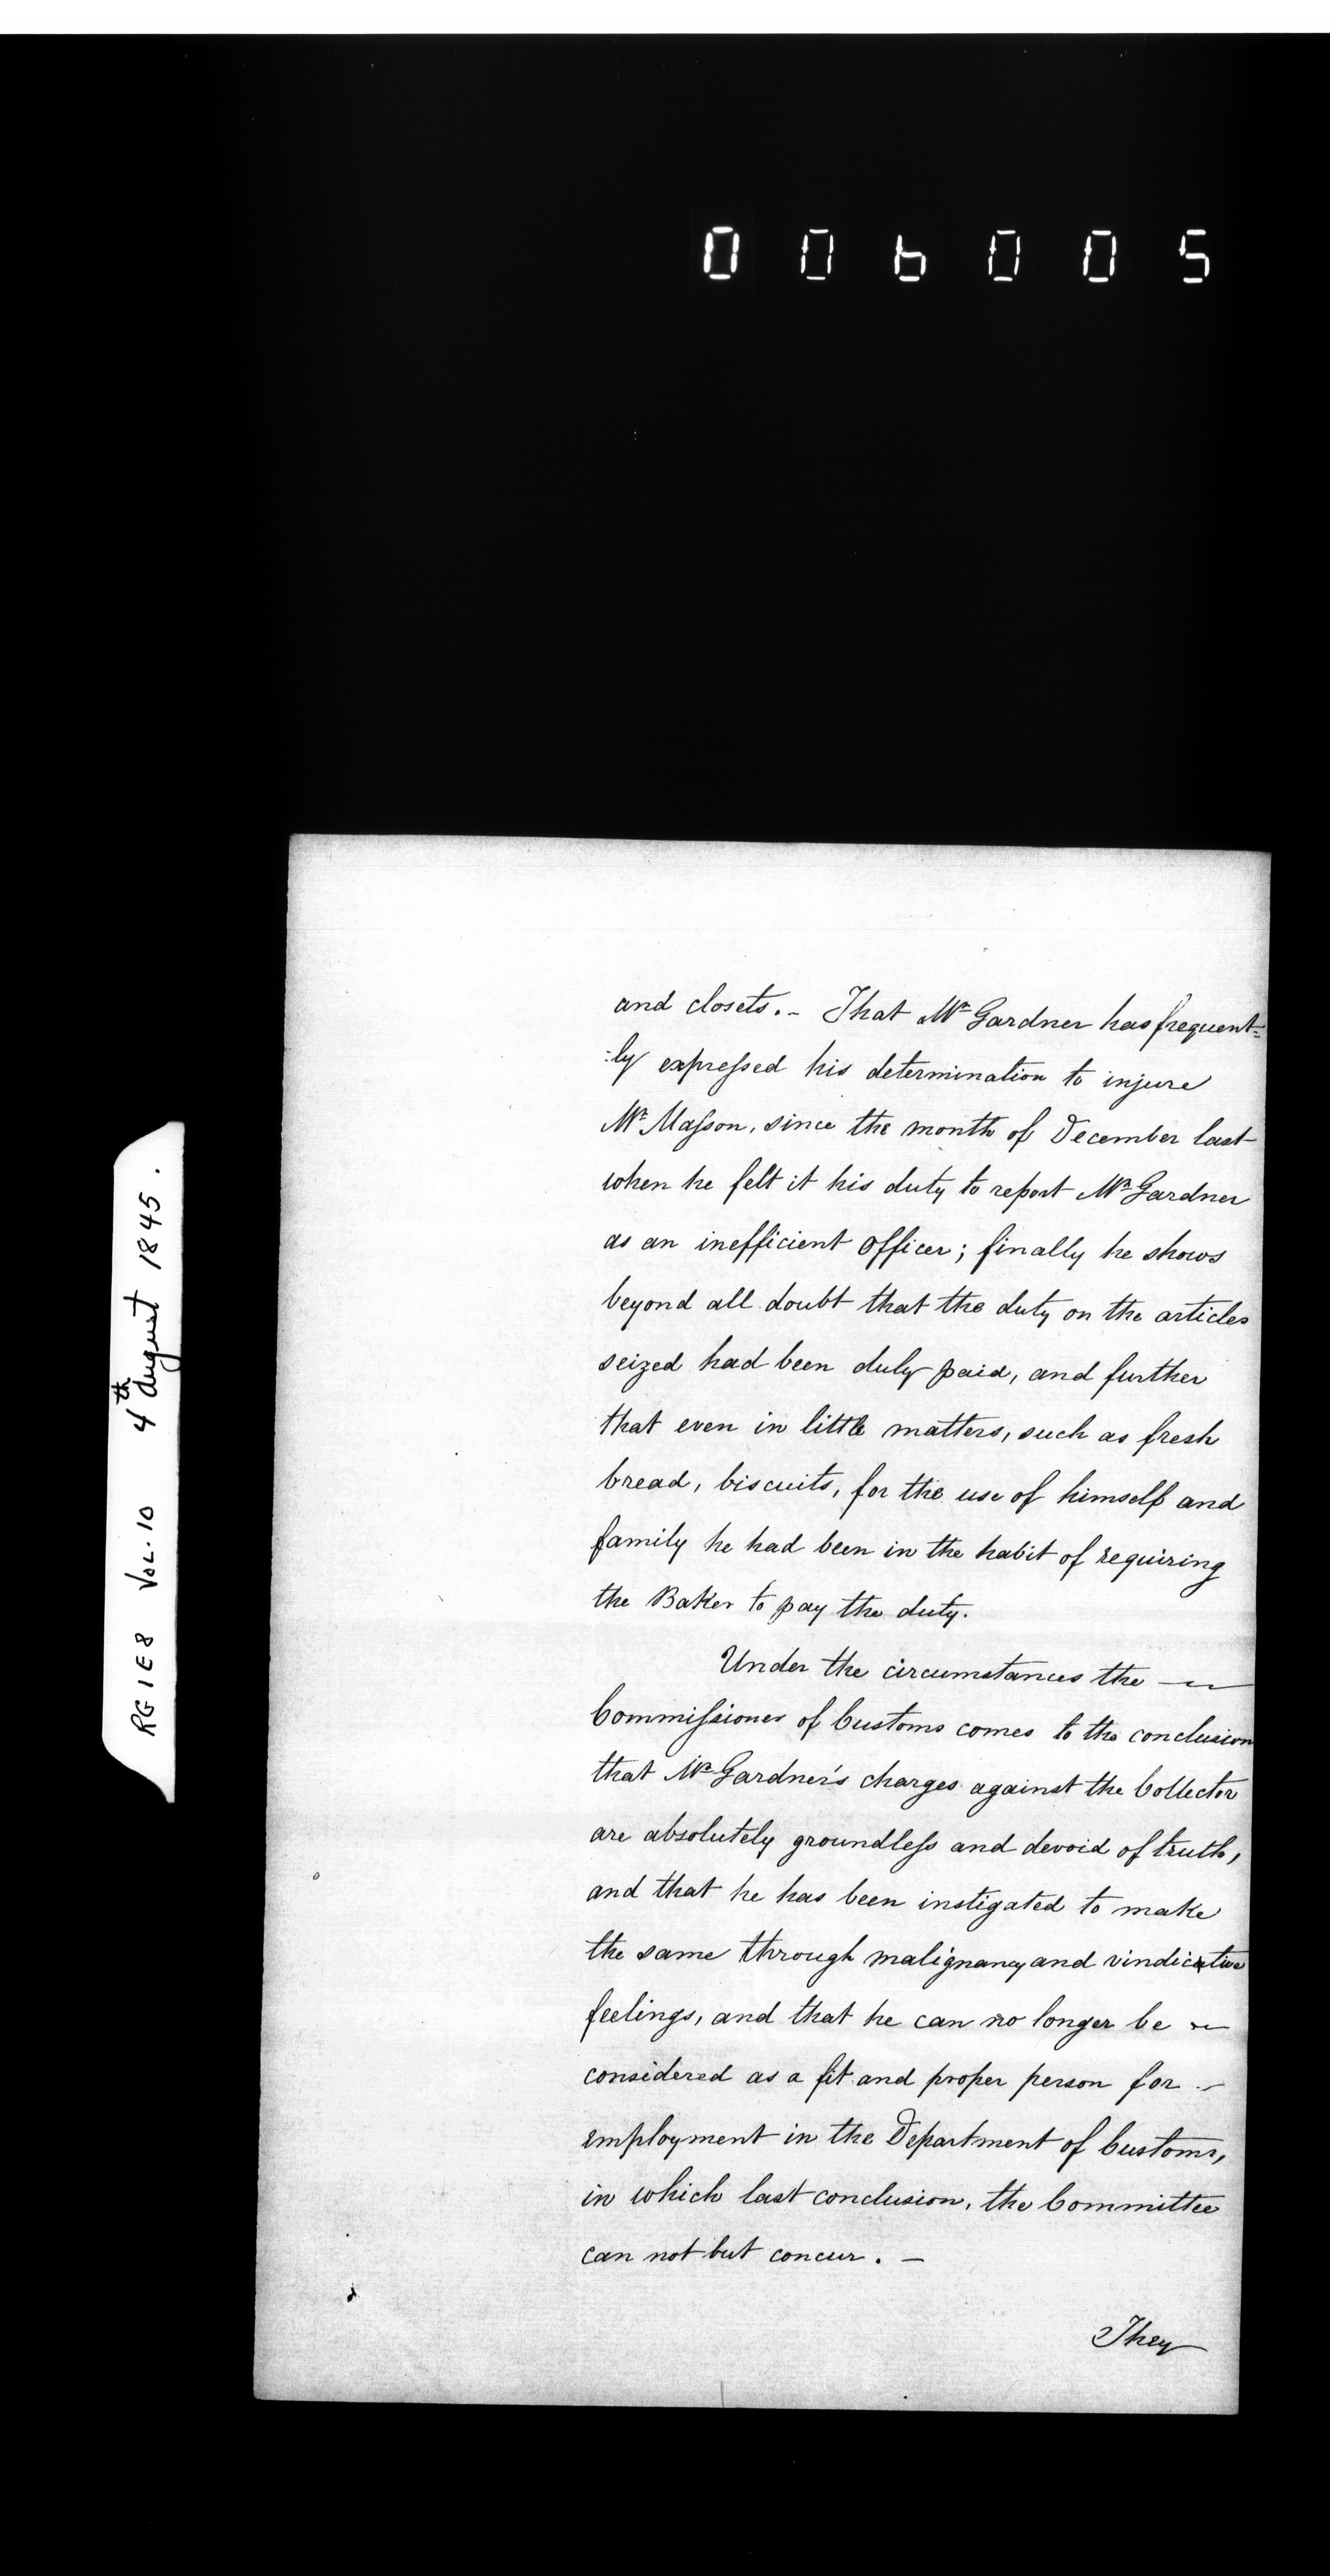 006005
RG 1 E8 VOL. 10 4th August 1845.
and closets. - That Mr Gardner has frequent=
:ly expressed his determination to injure
Mr Masson, since the month of December last
when he felt it his duty to report Mr Gardner
as an inefficient officer; finally he shows
beyond all doubt that the duty on the articles
seized had been duly paid, and further
that even in little matters, such as fresh
bread, biscuits, for the use of himself and
family he had been in the habit of requiring
the Baker to pay the duty.
Under the circumstances the —
Commissioner of Customs comes to the conclusion
that Mr Gardner's charges against the Collector
are absolutely groundless and devoid of truth,
and that he has been instigated to make
the same through malignancy and vindicative
feelings, and that he can no longer be —
considered as a fit and proper person for —
employment in the Department of Customs,
in which last conclusion, the Committee
can not but concur. —
They